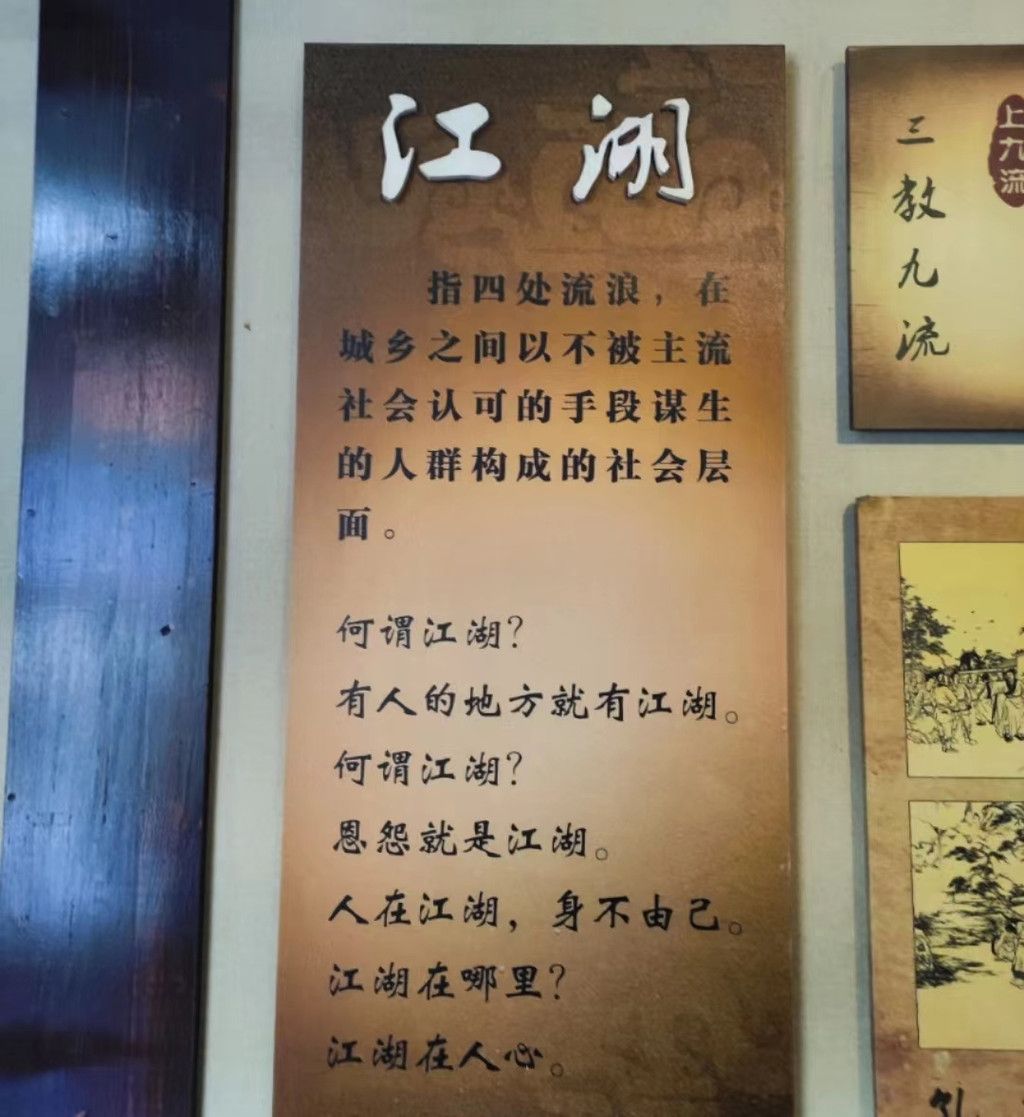 江湖
指四处流浪，在
城乡之间以不被主流
社会认可的手段谋生
的人群构成的社会层
面。
何谓江湖？
有人的地方就有江湖。
何谓江湖？
恩怨就是江湖。
人在江湖，身不由己。
江湖在哪里？
江湖在人心。
三教九流
上九流